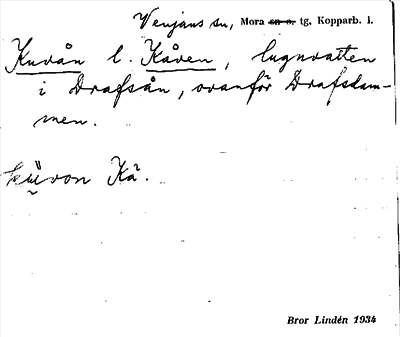 Venjans sn, Mora sn o. tg, Kopparb. l.
Kuvån l. Kåven, lugnvatten
i Drafsån, ovanför Drafsdam-
men.
küvon Kä.
Bror Lindén 1934